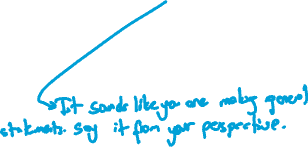 It sounds like you are making general
statements. Say it from your perspective.